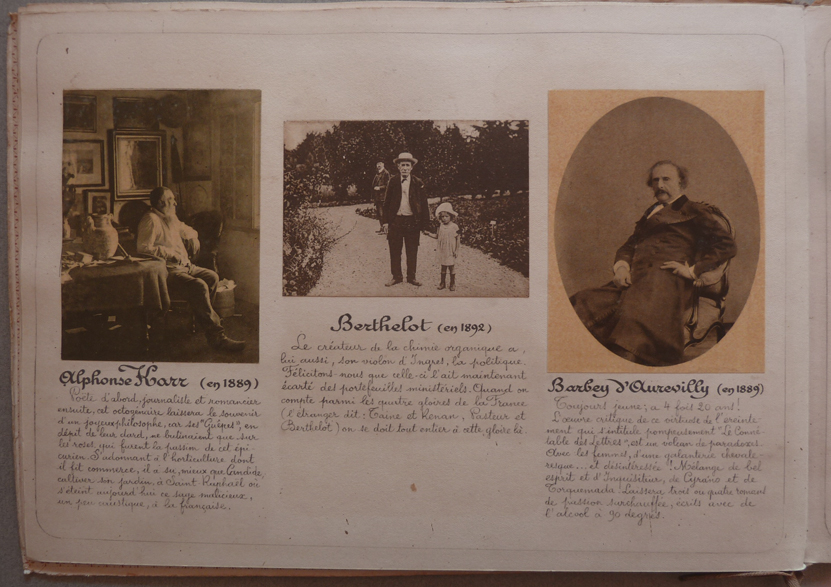 Alphonse Karr (en 1889)
Poète d'abord, journaliste et romancier
ensuite, cet octogénaire laissera le souvenir
d'un joyeux philosophe, car ses "Guêpes", en
dépit de leur dard, ne butinaient que sur
les roses qui furent la passion de cet épi-
curien. S'adonnant à l'horticulture dont
il fit commerce, il a su, mieux que Candide,
cultiver son jardin, à Saint Raphaël où
s'éteint aujourd'hui ce sage malicieux,
un peu mystique, à la française.
Berthelot (en 1892)
Le créateur de la chimie organique a,
lui aussi, son violon d'Ingres, la politique.
Félicitons-nous que celle-ci l'ait maintenant
écarté des portefeuilles ministériels. Quand on
compte parmi les quatre gloires de la France
(l'étranger dit: Taine et Renan, Pasteur et
Berthelot) on se doit tout entier à cette gloire là.
Barbey d'Aurevilly (en 1889)
Toujours jeune; a 4 fois 20 ans!
L'œuvre critique de ce virtuose de l'éreinte-
ment qui s'intitule pompeusement "Le Conné-
table des Lettres", est un volcan de paradoxes.
Avec les femmes, d'une galanterie chevale-
resque... et désintéressée! Mélange de bel
esprit et d'Inquisiteur, de Cyrano et de
Torquemada. Laissera trois ou quatre romans
de passion surchauffée, écrits avec de
l'alcool à 90 degrés.